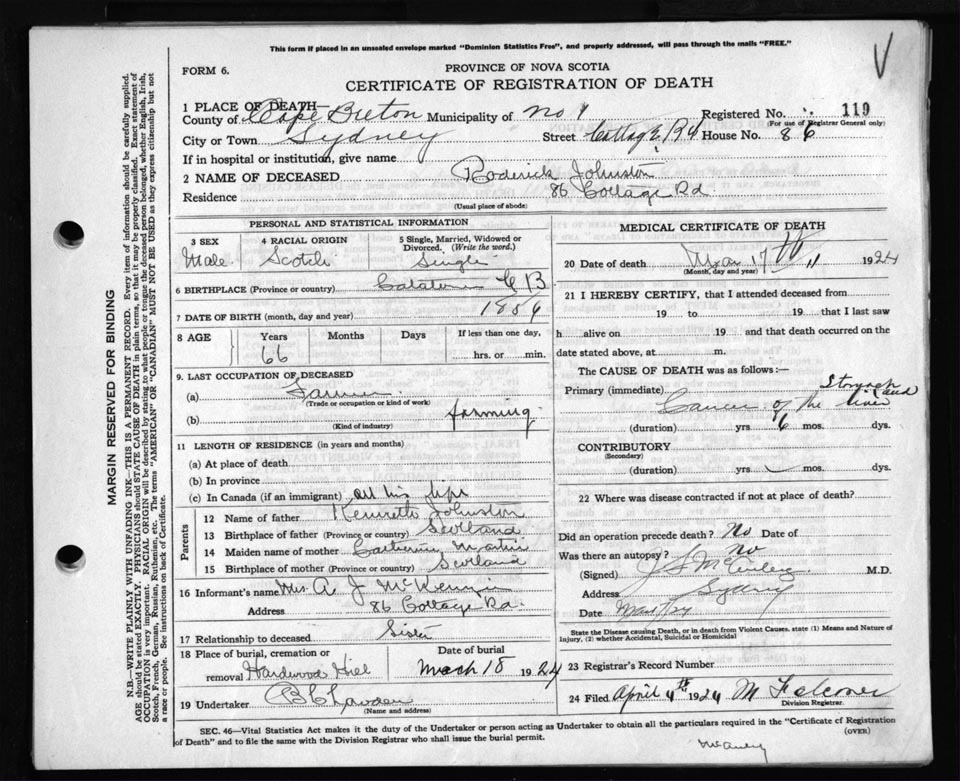 This form if placed in an unsealed envelope marked "Dominion Statistics Free", and properly addressed, will pass through the mails "FREE."
V
FORM 6.
PROVINCE OF NOVA SCOTIA
CERTIFICATE OF REGISTRATION OF DEATH
1 PLACE OF DEATH—
County of Cape Breton Municipality of No 1 Registered No. 119
(For use of Registrar General only)
City or Town Sydney Street Cottage Rd. House No. 86
If in hospital or institution, give name
2 NAME OF DECEASED Roderick Johnston
Residence 86 Cottage Rd
(Usual place of abode)
PERSONAL AND STATISTICAL INFORMATION
3 SEX 4 RACIAL ORIGIN 5 Single, Married, Widowed or Divorced. (Write the word.)
Male Scotch Single
6 BIRTHPLACE (Province or country) Catalone C B
7 DATE OF BIRTH (month, day and year)
8 AGE Years Months Days If less than one day,
66 hrs. or min.
9. LAST OCCUPATION OF DECEASED
(a) Farmer
(Trade or occupation or kind of work)
(b) farming
(Kind of industry)
11 LENGTH OF RESIDENCE (in years and months)
(a) At place of death
(b) In province
(c) In Canada (if an immigrant) all his life
Parents
12 Name of father Kenneth Johnston
13 Birthplace of father (Province or country) Scotland
14 Maiden name of mother Catherine
15 Birthplace of mother (Province or country) Scotland
16 Informant's name Mrs A J McKenzie
Address 86 Cottage Rd.
17 Relationship to deceased Sister
18 Place of burial, cremation or removal Hardwood Hill
Date of burial March 18 1924
19 Undertaker
(Name and address)
MEDICAL CERTIFICATE OF DEATH
20 Date of death Mar 17 1924
(Month, day and year)
21 I HEREBY CERTIFY, that I attended deceased from
19 to 19 that I last saw
h alive on 19 and that death occurred on the
date stated above, at m.
The CAUSE OF DEATH was as follows:—
Primary (immediate) Cancer of the Stomach and liver
(duration) yrs. 6 mos. dys.
CONTRIBUTORY
(Secondary)
(duration) yrs. mos. dys.
22 Where was disease contracted if not at place of death?
Did an operation precede death? No
Was there an autopsy? No
(Signed) M.D.
Address Sydney
Date
State the Disease causing Death, or in death from Violent Causes, state (1) Means and Nature of
Injury, (2) whether Accidental, Suicidal or Homicidal
23 Registrar's Record Number
24 Filed April 4th 1924 M Falconer
Division Registrar.
SEC. 46—Vital Statistics Act makes it the duty of the Undertaker or person acting as Undertaker to obtain all the particulars required in the "Certificate of Registration
of Death" and to file the same with the Division Registrar who shall issue the burial permit.
(OVER)
MARGIN RESERVED FOR BINDING
N.B.—WRITE PLAINLY, WITH UNFADING INK—THIS IS A PERMANENT RECORD. Every item of information should be carefully supplied.
AGE should be stated EXACTLY. PHYSICIANS should STATE CAUSE OF DEATH in plain terms, so that it may be properly classified. Exact statement of
OCCUPATION is very important. RACIAL ORIGIN will be described by stating to what people or tongue the deceased person belonged, whether English, Irish,
Scotch, French, German, Russian, Ruthenian, etc. The terms "AMERICAN" or "CANADIAN" MUST NOT BE USED as they express citizenship but not
a race or people. See instructions on back of Certificate.